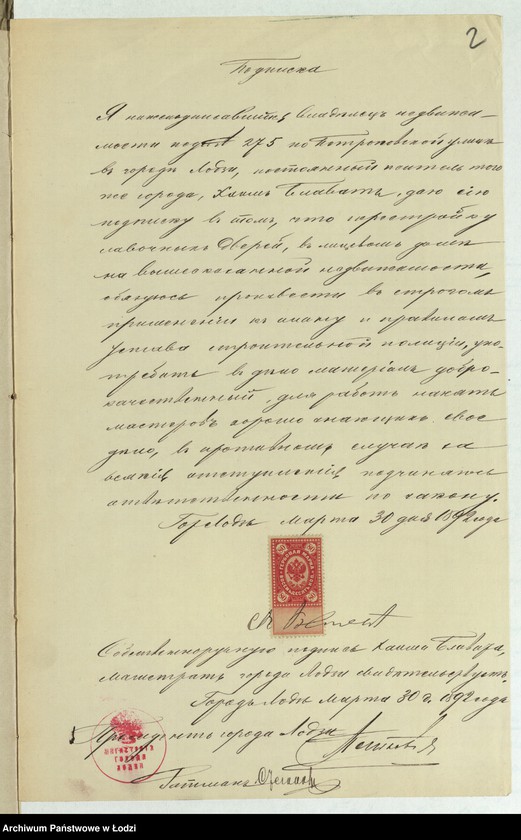 2
Подписка
Я нижеподписавшийся владелецъ недвижи-
мости под № 275 по Петроковской улице
въ городе Лодзи, постоянный житель того
же города, Хаимъ Блаватъ, даю сію
подписку въ томъ, что перестройку
лавочныхъ дверей, въ лицевомъ доме
на вышесказанной недвижимости,
обязуюсь произвести въ строгомъ
применении къ плану и правиламъ
Устава строительной полиціи, упо-
требить въ дело матеріалъ добро-
качественный, для работъ нанять
мастеровъ хорошо знающихъ свое
дело, въ противномъ случае за
всякія отступленія подчиняюсь
ответственности по закону.
Гор Лодзь Марта 30 дня 1892 года
80 80
80 80
Собственноручную подпись Хаима Блавата,
Магистратъ города Лодзи свидетельствуетъ
Городъ Лодзь Марта 30 д. 1892 года
Президентъ города Лодзи
Archiwum Państwowe w Łodzi